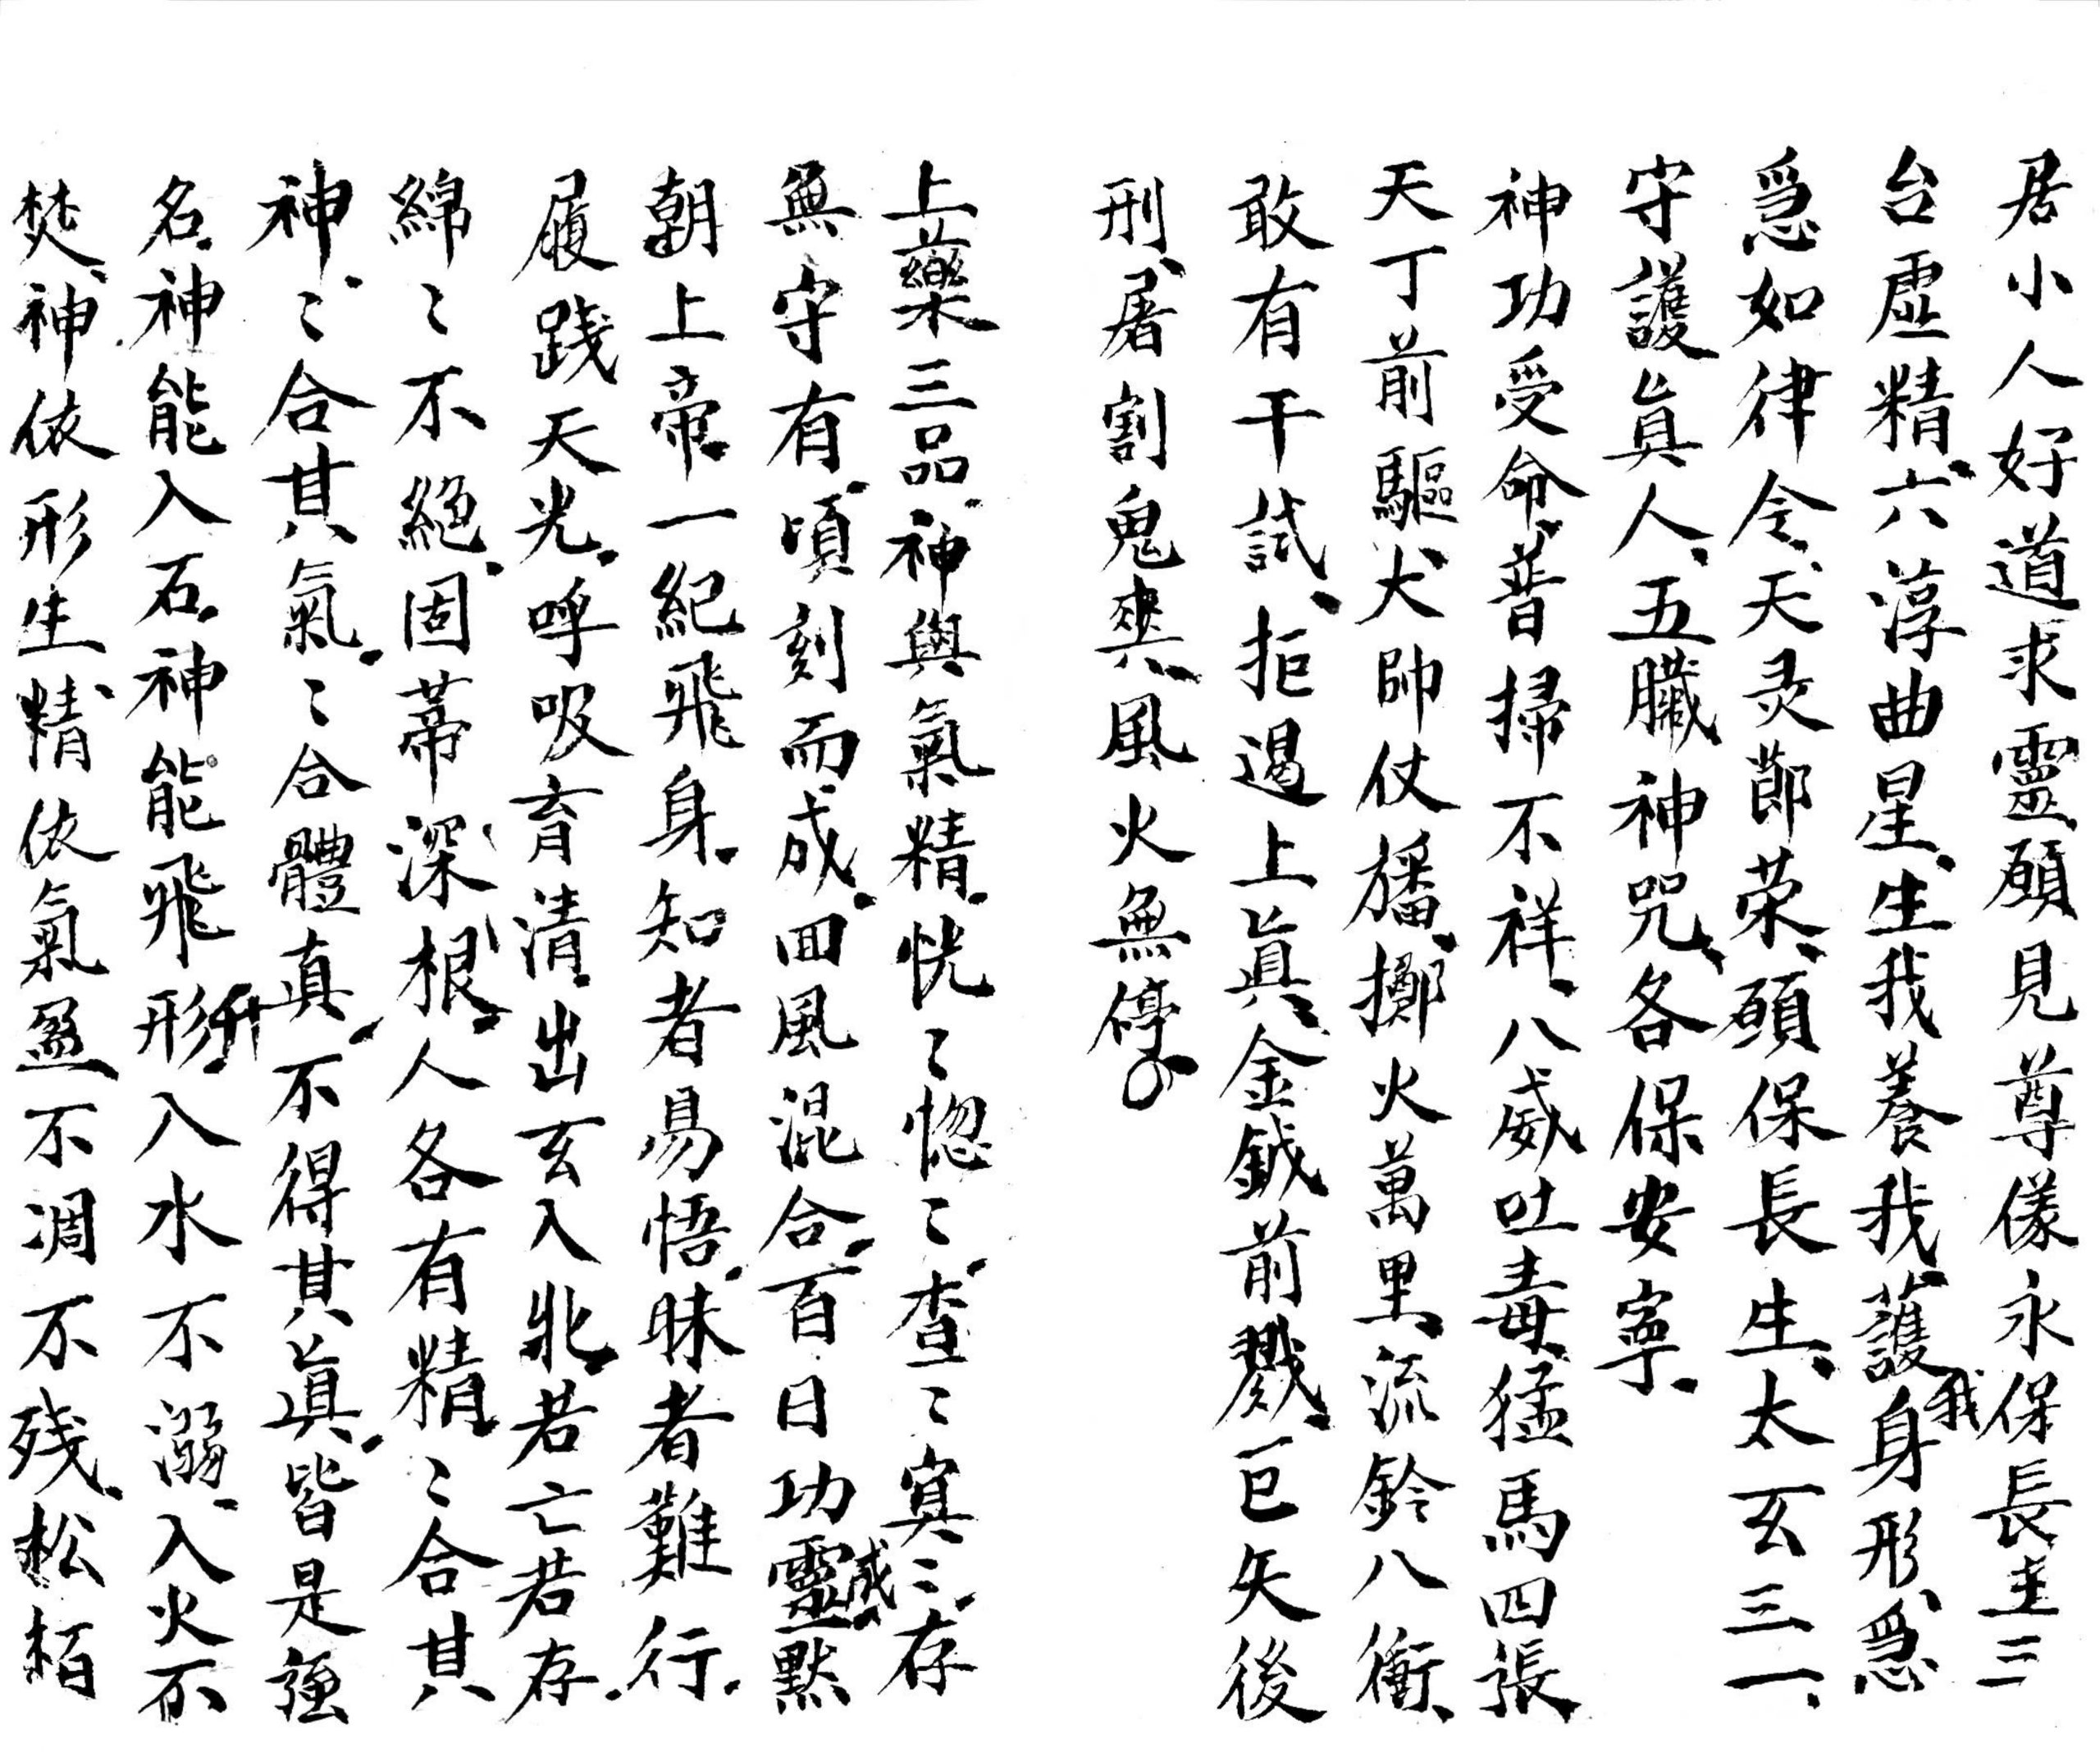 居小人好道求靈願見尊儀永保長生三
台虛精、六淳曲星、生我養我、護我身形、急
急如律令、天灵節荣、願保長生、太玄三一、
守護眞人、五臟神咒、各保安寧、
神功受命、普掃不祥、八威吐毒、猛馬四張
天丁前驅、大帥仗旛、擲火萬里、流鈴八衝、
敢有干試、拒遏上眞、金鉞前戮、巨矢後
刑、屠割鬼爽、風火無停。
上藥三品、神與氣精、恍〻惚〻、杳〻冥〻、存
無守有、頃刻而成、回風混合、百日功成、靈默
朝上帝、一紀飛身、知者易悟、昧者難行、
履踐天光、呼吸育清、出玄入牝、若亡若存、
綿〻不絕、固蒂深根、人各有精、〻合其
神、〻合其氣、〻合體真、不得其眞、皆是強
名、神能入石、神能飛形、升入水不溺、入火不
焚、神依形生、精依氣盈、不凋不残、松栢